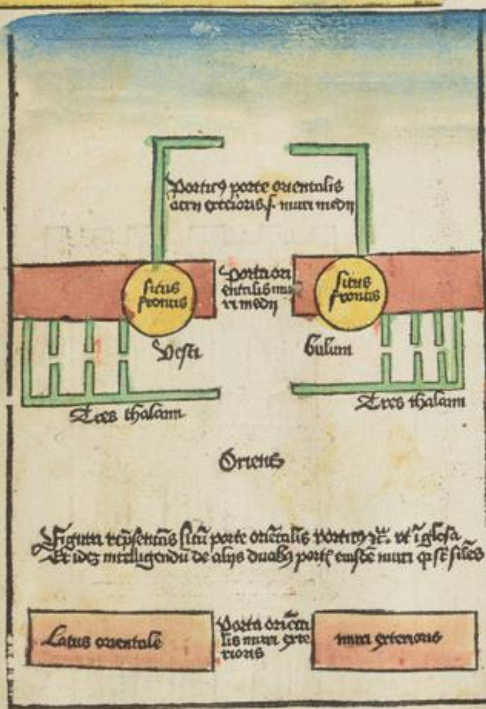 Porticꝰ porte orientalis
atrii exterioris .s. muri medii
situs
frontis
Porta ori
entalis mu
ri medii
situs
frontis
Vesti
bulum
Tres thalami
Tres thalami
Oriens
Figura rep̄sentās sitū porte oriētalis porticꝰ ⁊c̄. vt ī glosa
Et idez intelligendū de aliis duabꝰ port{} eiusdē muri q̄ sūt siles
Latus orientale
Porta oriēta
lis muri exte
rioris
muri exterioris